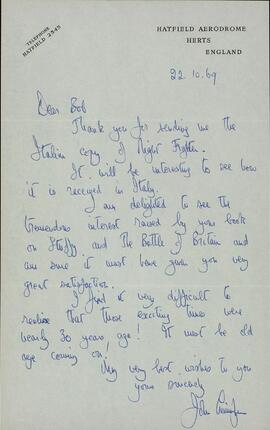 TELEPHONE
HATFIELD 2345
HATFIELD AERODROME
HERTS
ENGLAND
22.10.69
Dear Bob
Thank you for sending me the
Italian copy of Night Fighter.
It will be interesting to see how
it is received in Italy.
I am delighted to see the
tremendous interest raised by your book
on Stuffy and the Battle of Britain and
am sure it must have given you very
great satisfaction.
I find it very difficult to
realise that those exciting times were
nearly 30 years ago! It must be old
age coming on.
My very best wishes to you
yours sincerely
John